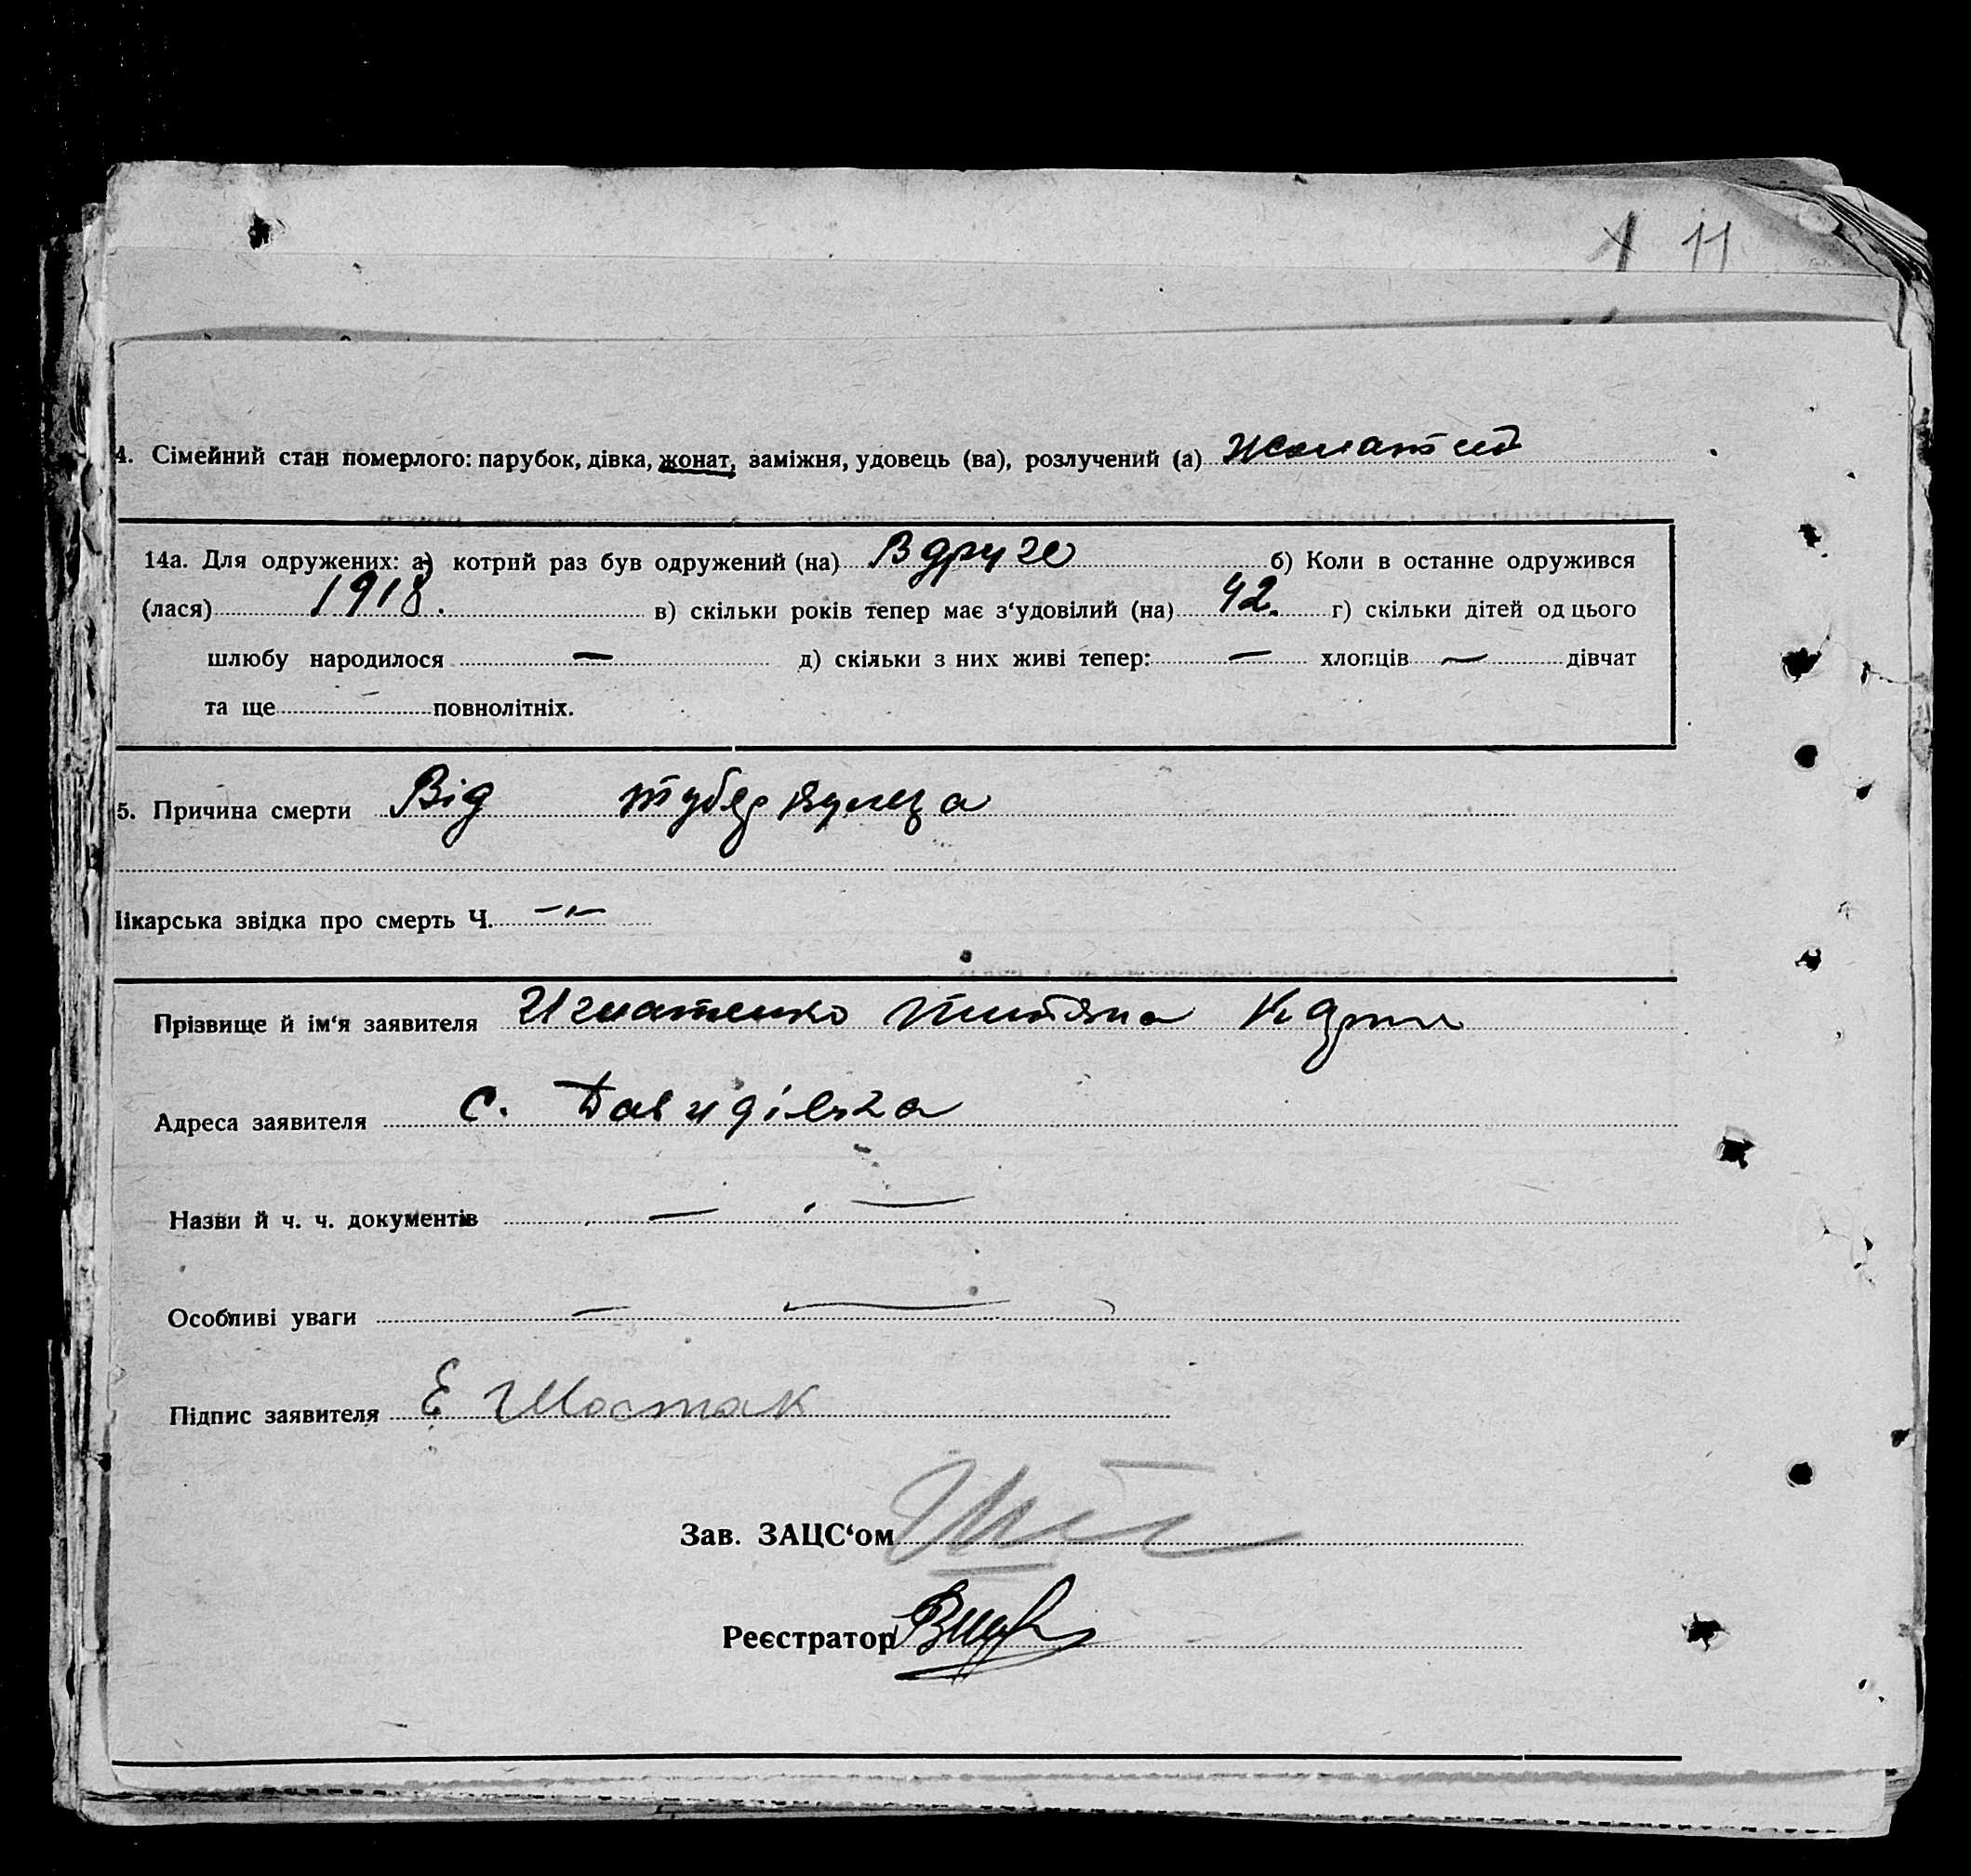 11
4. Сімейний стан померлого: парубок, дівка, жонат, заміжня, удовець (ва), розлучений (а) Жонатий
14а. Для одружених: а) котрий раз був одружений (на) Вдруге б) Коли в останне одружився
(лася) 1918. в) скільки років тепер має з‘удовілий (на) 42. г) скільки дітей од цього
шлюбу народилося — д) скільки з них живі тепер: — хлопців — дівчат
та ще — повнолітніх.
5. Причина смерти Від туберкульоза
Лікарська звідка про смерть Ч. —„—
Прізвище й ім‘я заявителя Игнатенко
Адреса заявителя С. Давидівка
Назви й ч. ч. документів — —
Особливі уваги — —
Підпис заявителя Е Шостак
Зав. ЗАЦС‘ом
Реєстратор